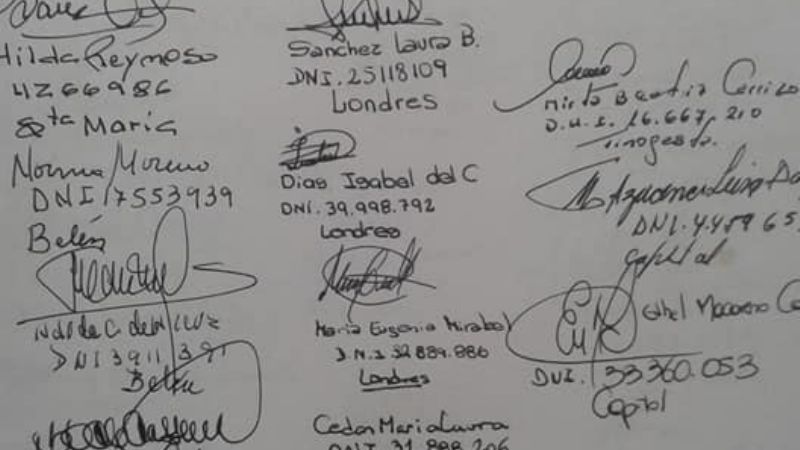 Hilda Reynoso
4266986
Sta Maria
Norma Moreno
DNI 17553939
Belén
DNI 3911391
Belén
Sanchez Laura B.
DNI. 25118109
Londres
Dias Isabel del C
DNI. 39.998.792
Londres
Maria Eugenia Mirabal
D.N.I 32.889.886
Londres
Cedon Maria Laura
DNI 31.888.206
Mirta Beatriz Carrizo
D.N.I. 16.667.210
Tinogasta.
DNI. 4.459 65
Capital
Ethel Macareno
DNI. 33360.053
Capital